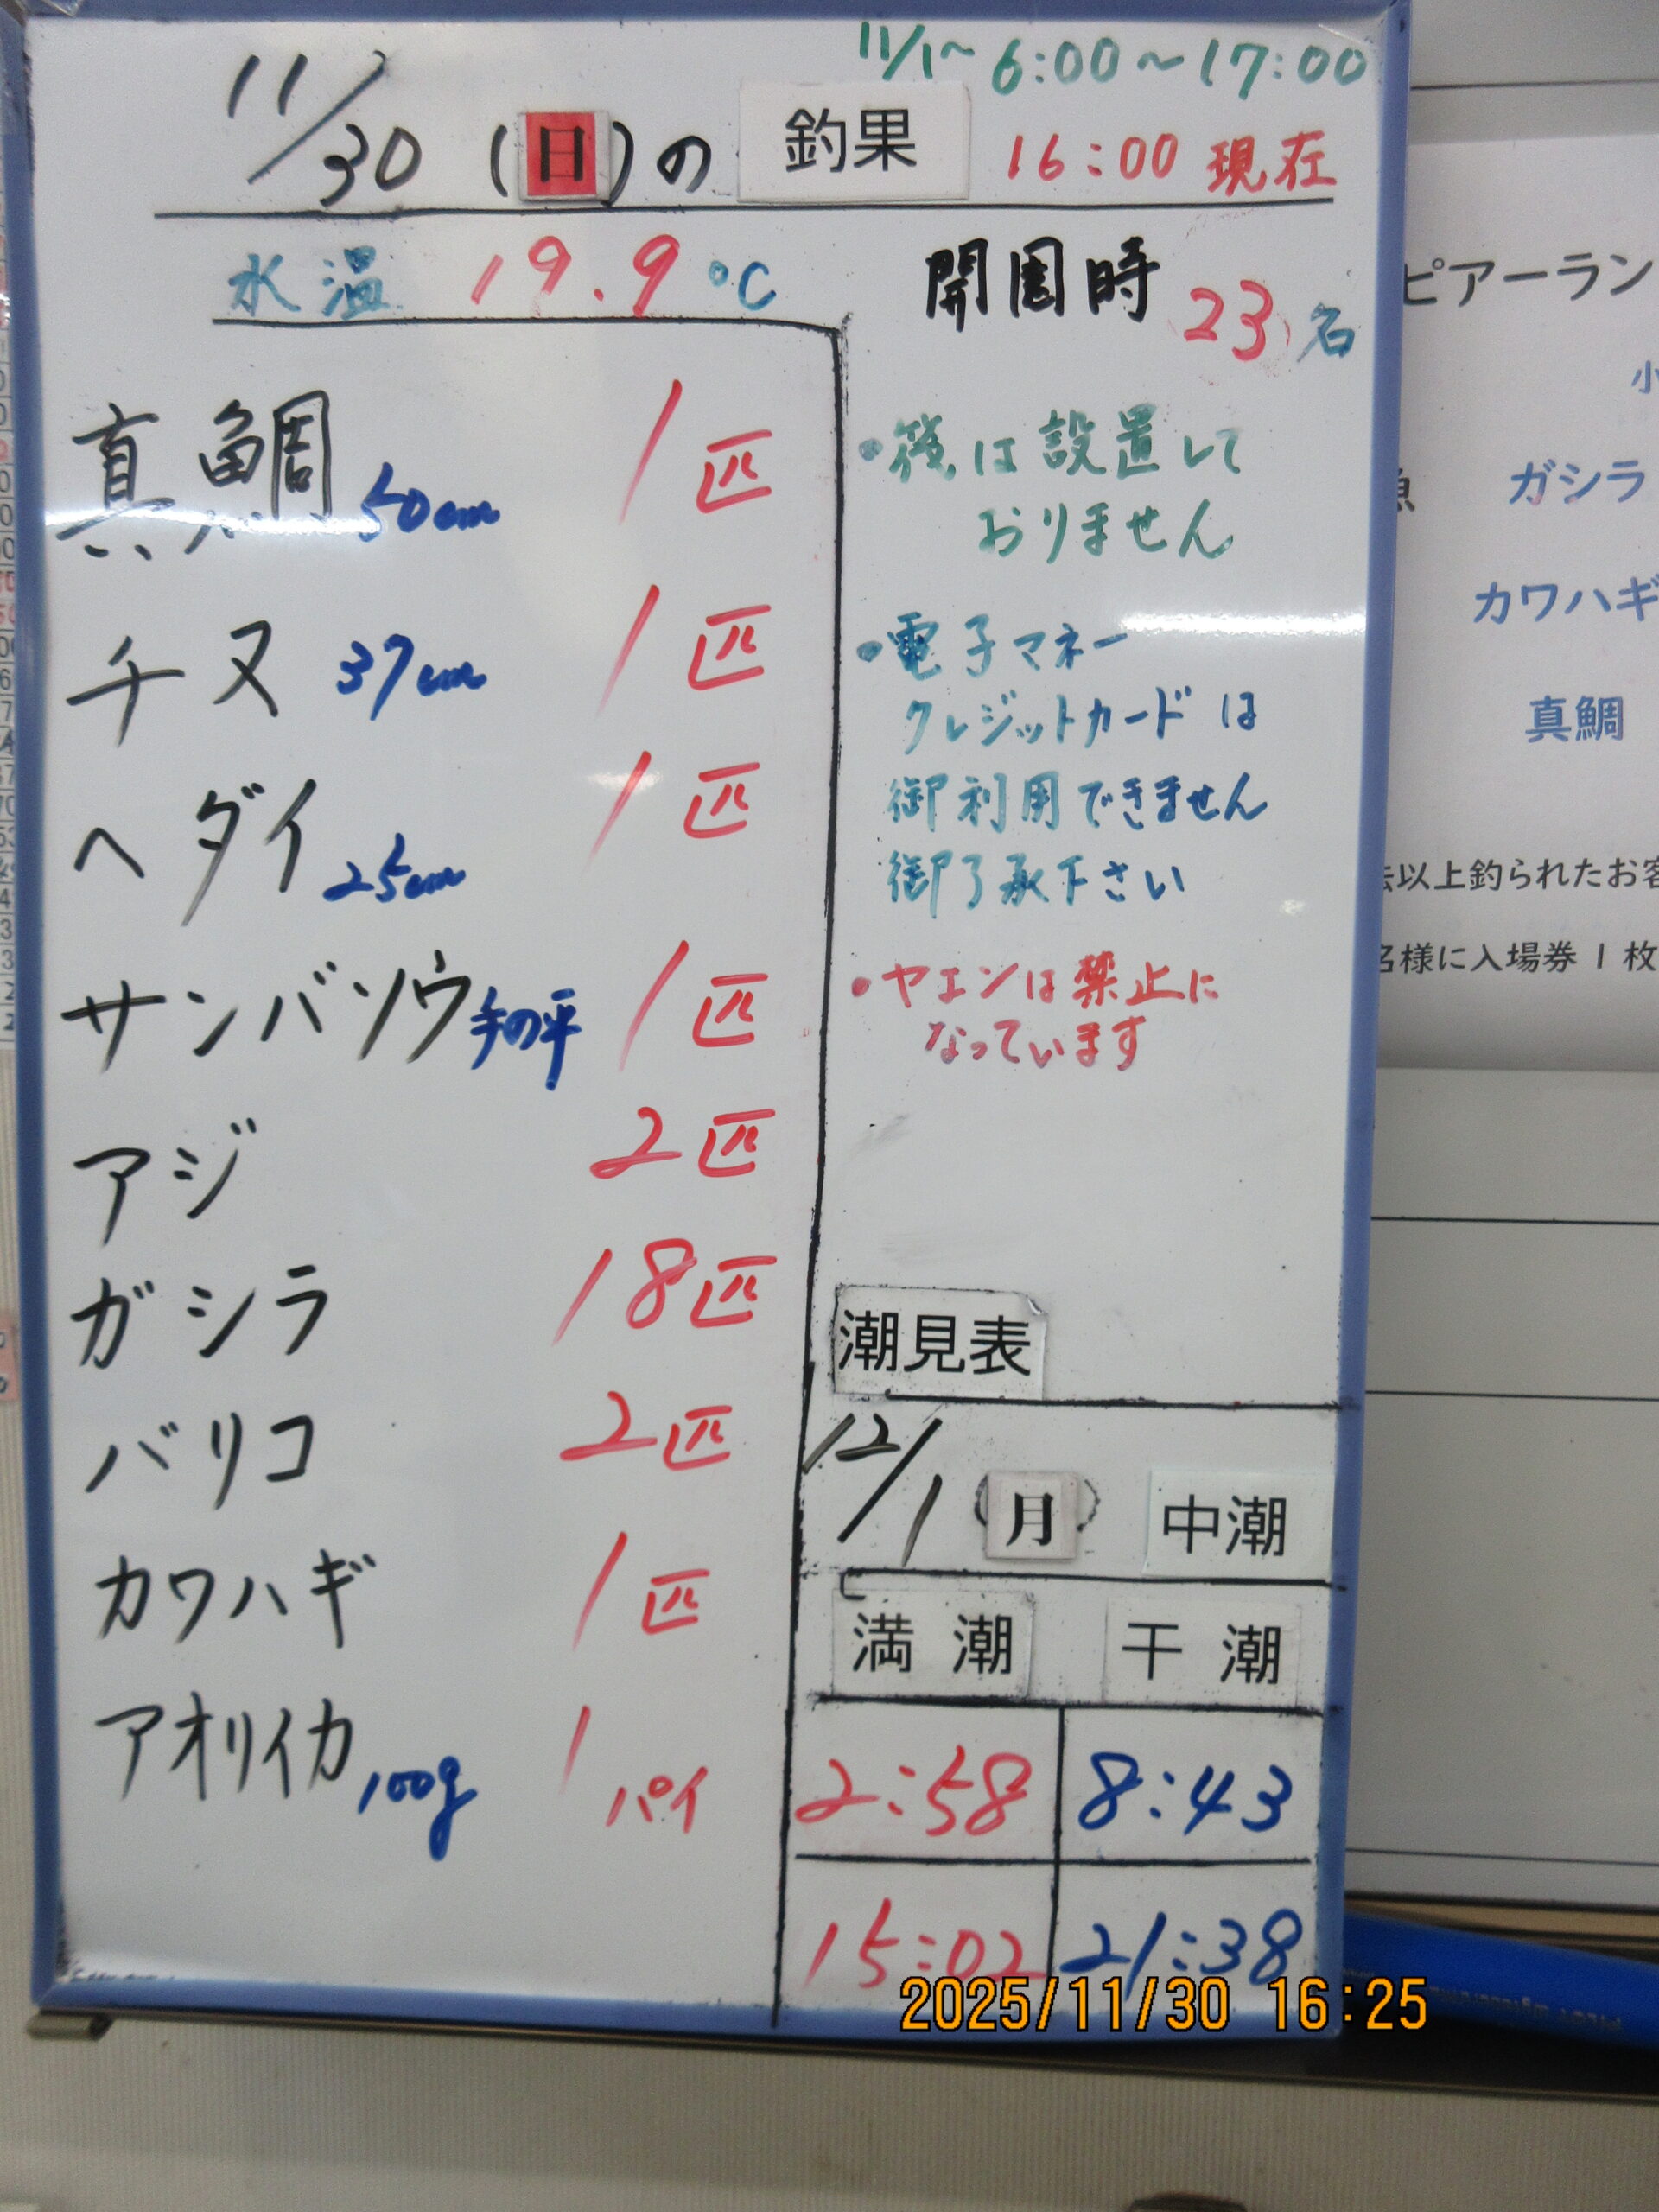 11/1~ 6:00~17:00
11/30 (日)の 釣果 16:00 現在
水温 19.9℃
開園時 23名
真鯛 50cm 1匹
チヌ 37cm 1匹
ヘダイ 25cm 1匹
サンバソウ 手の平 1匹
アジ 2匹
ガシラ 18匹
バリコ 2匹
カワハギ 1匹
アオリイカ 100g 1パイ
・筏は設置して
おりません
・電子マネー
クレジットカードは
御利用できません
御了承下さい
・ヤエンは禁止に
なっています
潮見表
12/1 (月) 中潮
満潮 干潮
2:58 8:43
15:02 21:38
ピアーラン
小
ガシラ
カワハギ
真鯛
以上釣られたお客
名様に入場券1枚
2025/11/30 16:25